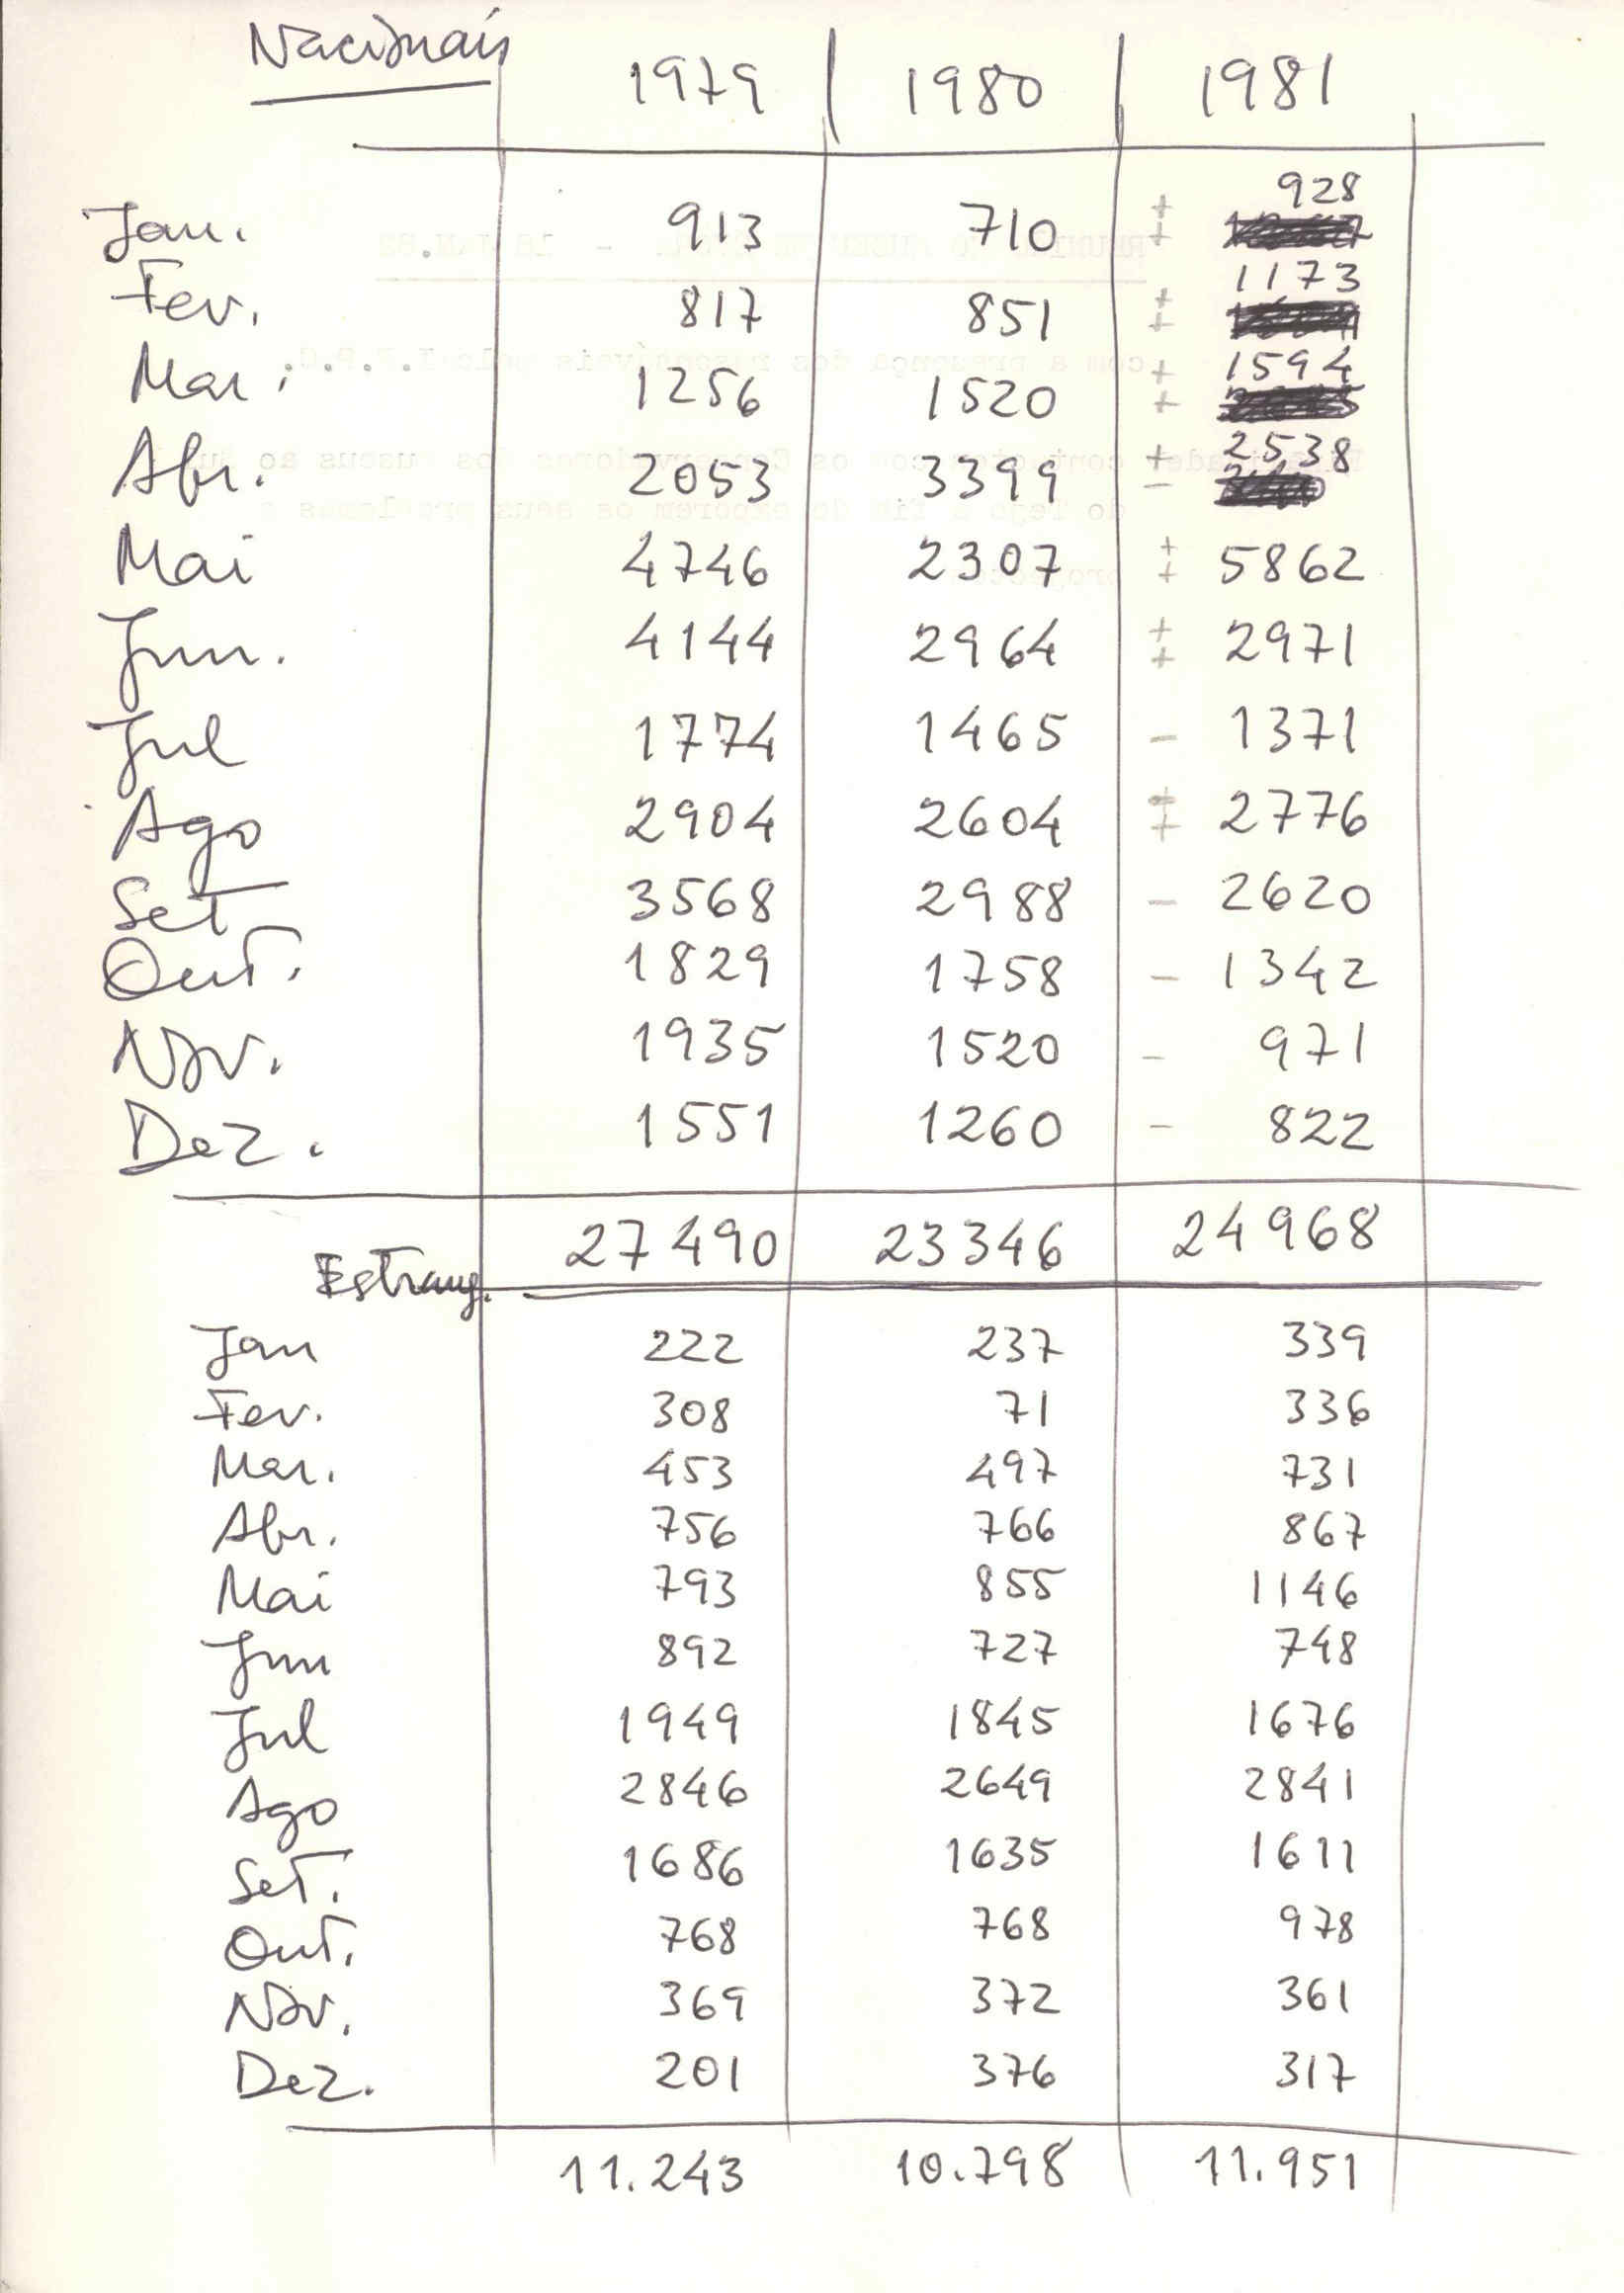 Nacionais 1979 1980 1981
Jan. 913 710 + + 928
Fev. 817 851 + + 1173
Mar. 1256 1520 + + 1594
Abr. 2053 3399 + - 2538
Mai 4746 2307 + + 5862
Jun. 4144 2964 + + 2971
Jul 1774 1465 - 1371
Ago 2904 2604 + + 2776
Set 3568 2988 - 2620
Out. 1829 1758 - 1342
Nov. 1935 1520 - 971
Dez. 1551 1260 - 822
27490 23346 24968
Estrang.
Jan 222 237 339
Fev. 308 71 336
Mar. 453 497 731
Abr. 756 766 867
Mai 793 855 1146
Jun 892 727 748
Jul 1949 1845 1676
Ago 2846 2649 2841
Set. 1686 1635 1611
Out. 768 768 978
Nov. 369 372 361
Dez. 201 376 317
11.243 10.798 11.951